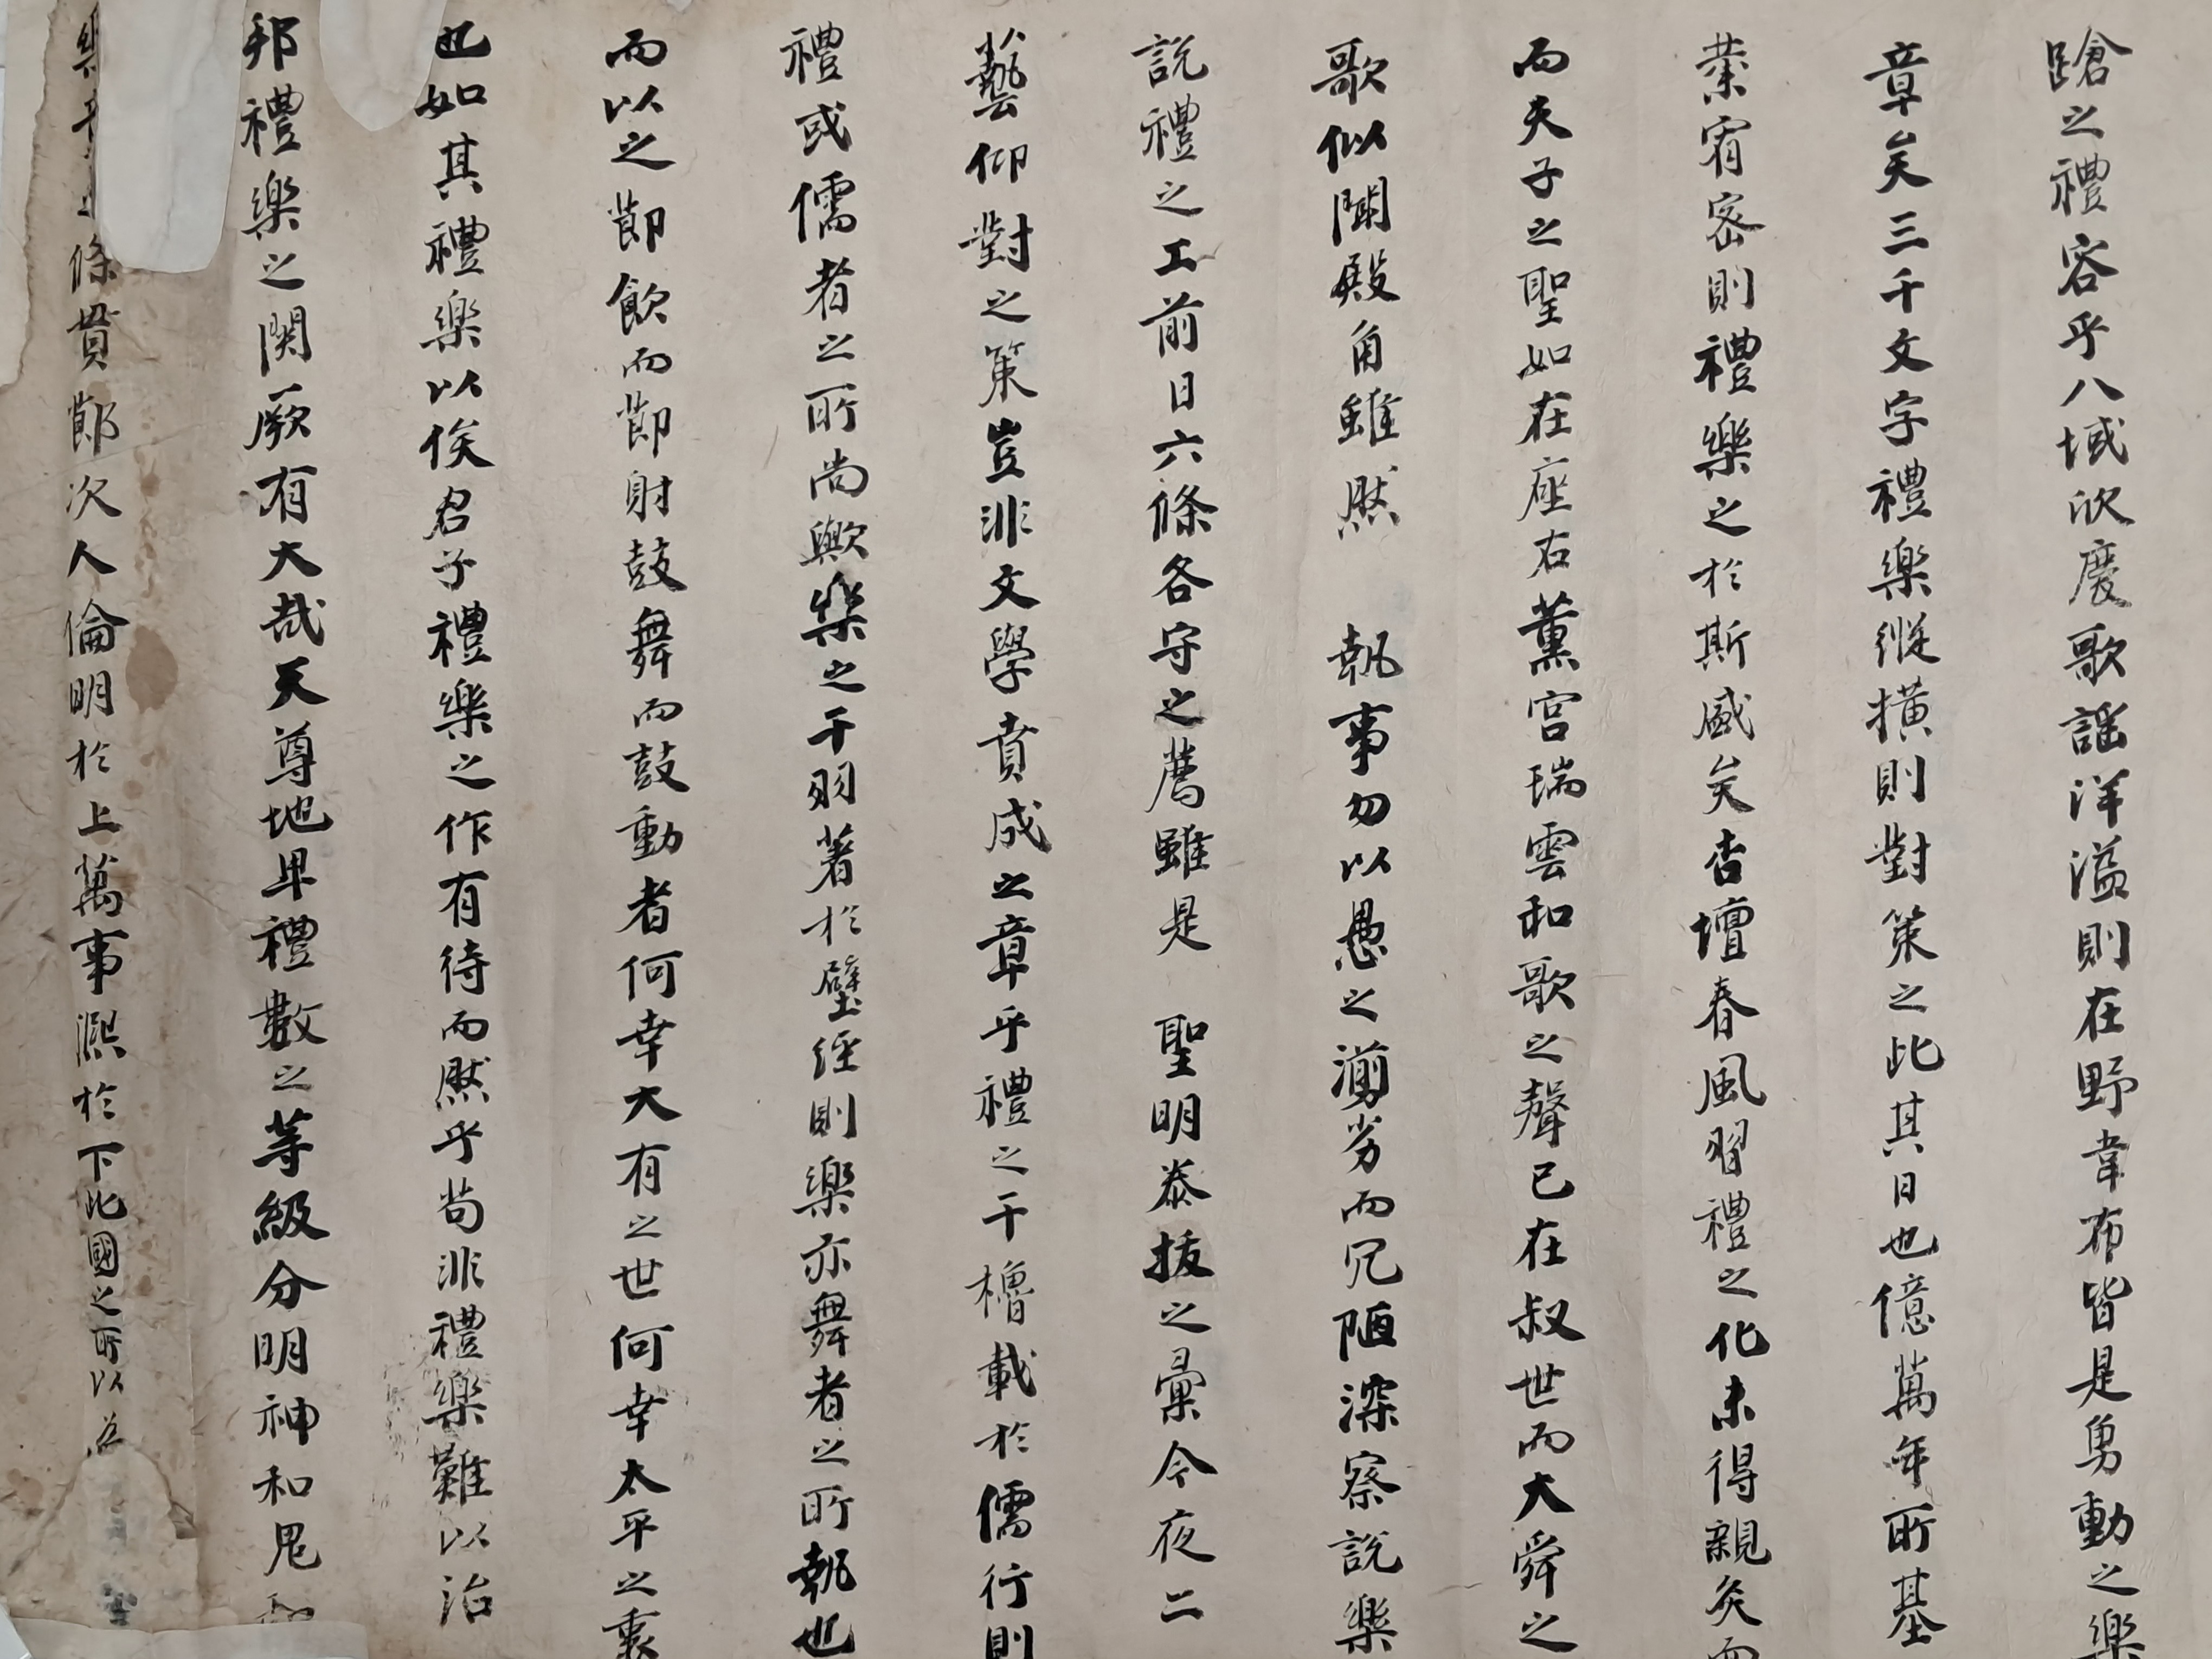 蹌之禮容乎八域欣慶歌謠洋溢則在野韋布皆是勇動之樂
章矣三千文字禮樂縱橫則對策之此其日也億萬年所基
業宥密則禮樂之於斯盛矣杏壇春風習禮之化未得親炙而
而夫子之聖如在座右薰宮瑞雲和歌之聲已在叔世而大舜之
歌似聞殿角雖然 執事勿以愚之謭劣而冗陋深察說樂
說禮之工前日六條各守之薦雖是 聖明泰拔之彙今夜二
藝仰對之策豈非文學賁成之章乎禮之干櫓載於儒行則
禮或儒者之所尚歟樂之干羽著於壁經則樂亦舞者之所執也
而以之節飮而節射鼓舞而鼓動者何幸大有之世何幸太平之
也如其禮樂以俟君子禮樂之作有待而然乎苟非禮樂難以治
邦禮樂之関厥有大哉天尊地卑禮數之等級分明神和鬼
條貫節次人倫明於上萬事熙於下此國之所以